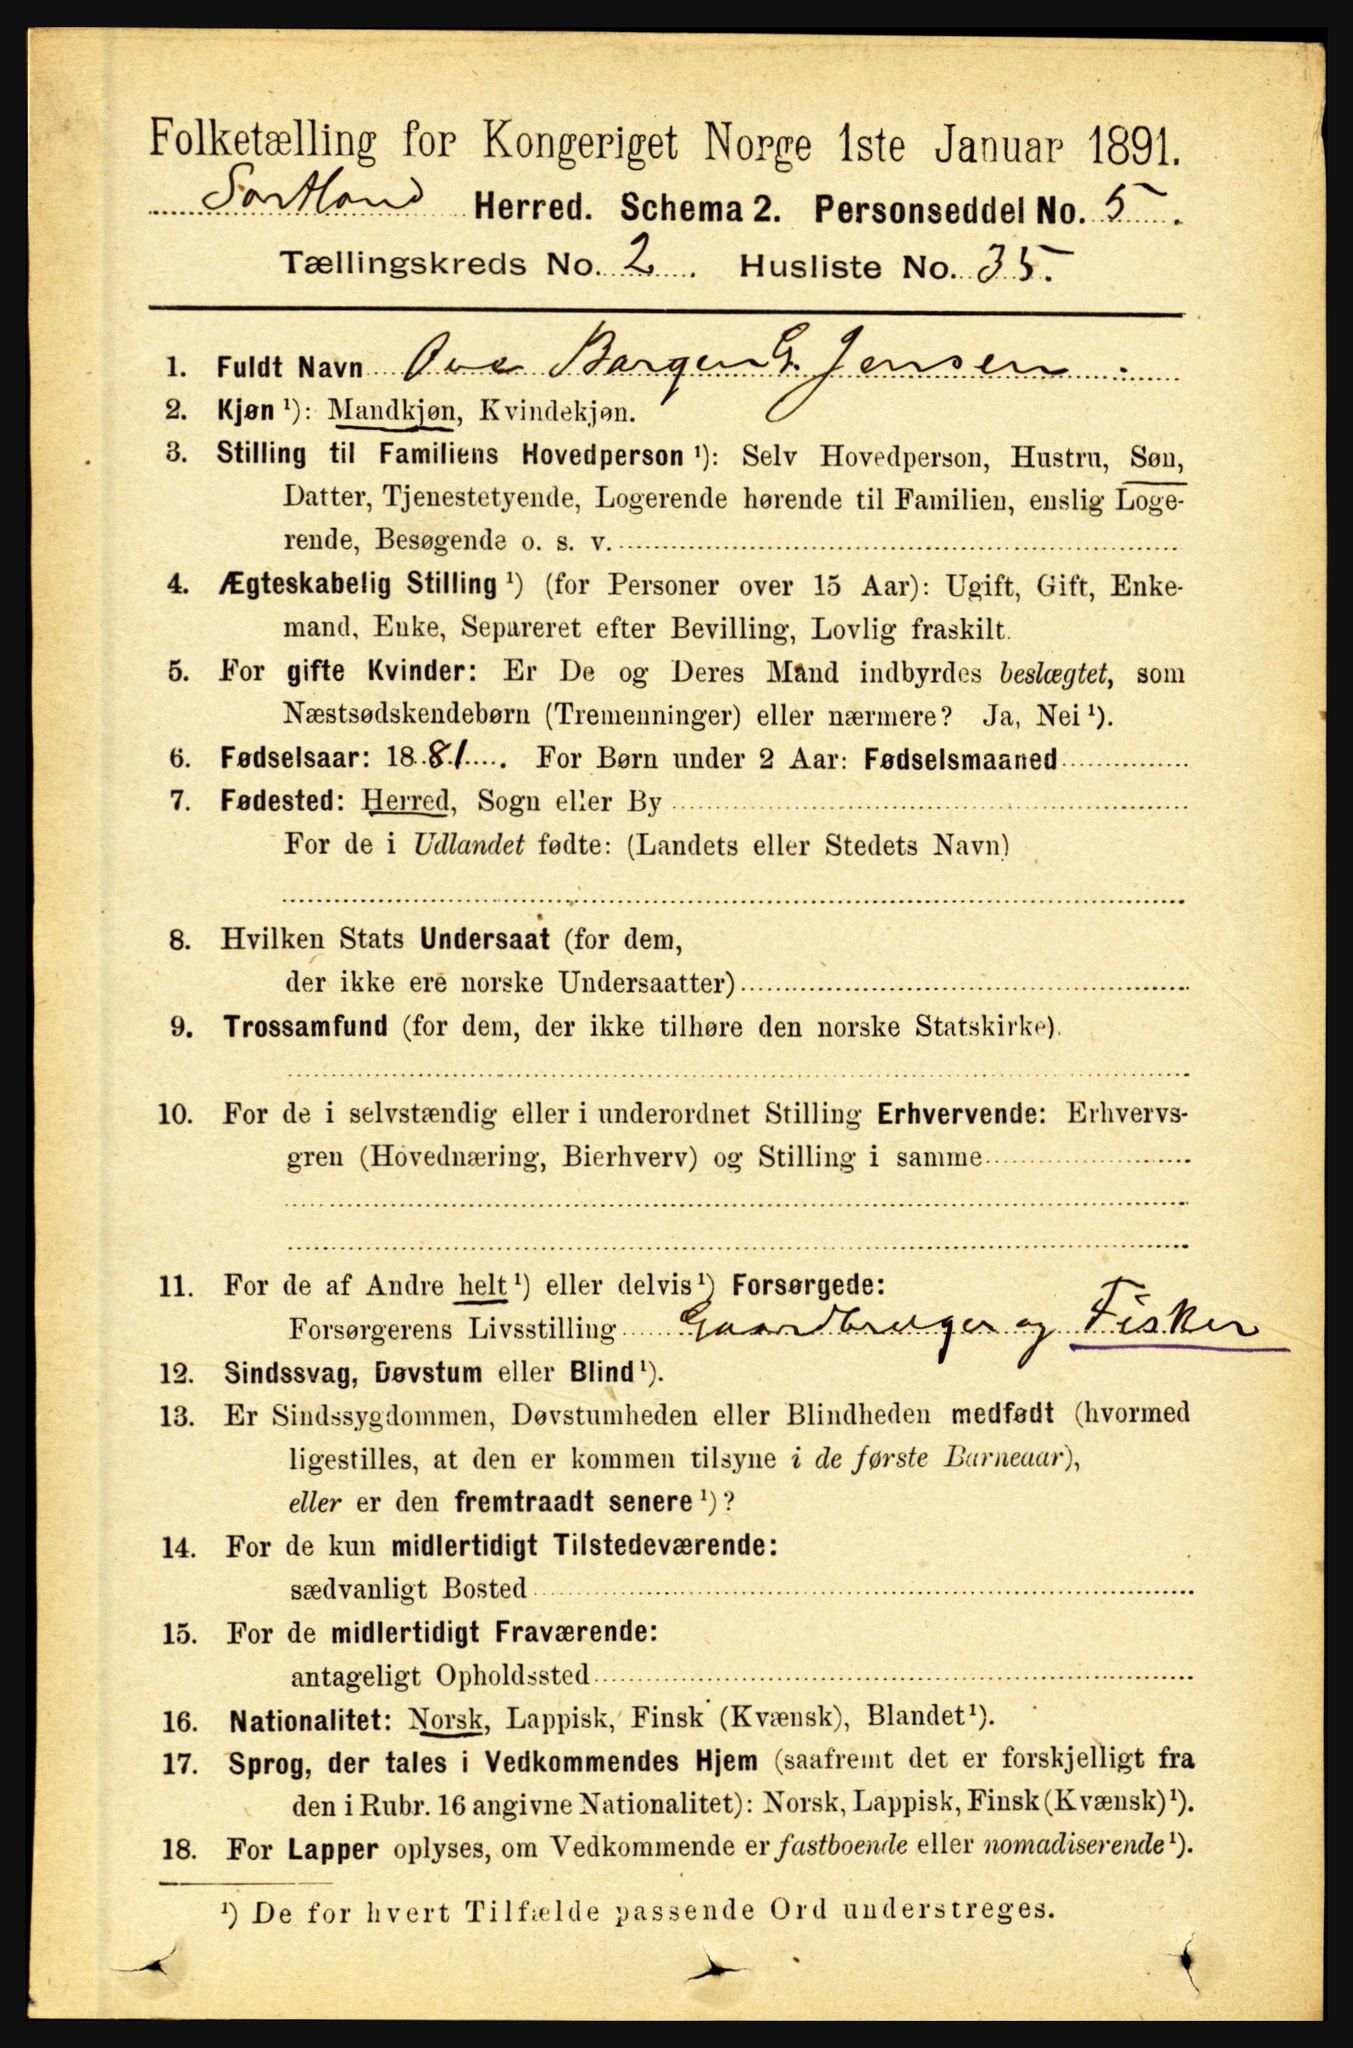 Folketælling for Kongeriget Norge 1ste Januar 1891.
Sortland Herred. Schema 2. Personseddel No. 5.
Tællingskreds No. 2. Husliste No. 35.
1. Fuldt Navn Ove Borgen G. Jensen.
2. Kjøn ¹): Mandkjøn, Kvindekjøn.
3. Stilling til Familiens Hovedperson ¹): Selv Hovedperson, Hustru, Søn,
Datter, Tjenestetyende, Logerende hørende til Familien, enslig Loge-
rende, Besøgende o. s. v.
4. Ægteskabelig Stilling ¹) (for Personer over 15 Aar): Ugift, Gift, Enke-
mand, Enke, Separeret efter Bevilling, Lovlig fraskilt.
5. For gifte Kvinder: Er De og Deres Mand indbyrdes beslægtet, som
Næstsødskendebørn (Tremenninger) eller nærmere? Ja, Nei ¹).
6. Fødselsaar: 1881. For Børn under 2 Aar: Fødselsmaaned
7. Fødested: Herred, Sogn eller By
For de i Udlandet fødte: (Landets eller Stedets Navn)
8. Hvilken Stats Undersaat (for dem,
der ikke ere norske Undersaatter)
9. Trossamfund (for dem, der ikke tilhøre den norske Statskirke).
10. For de i selvstændig eller i underordnet Stilling Erhvervende: Erhvervs-
gren (Hovednæring, Bierhverv) og Stilling i samme
11. For de af Andre helt ¹) eller delvis ¹) Forsørgede:
Forsørgerens Livsstilling Gaardbruger og Fisker
12. Sindssvag, Døvstum eller Blind ¹).
13. Er Sindssygdommen, Døvstumheden eller Blindheden medfødt (hvormed
ligestilles, at den er kommen tilsyne i de første Barneaar),
eller er den fremtraadt senere ¹)?
14. For de kun midlertidigt Tilstedeværende:
sædvanligt Bosted
15. For de midlertidigt Fraværende:
antageligt Opholdssted
16. Nationalitet: Norsk, Lappisk, Finsk (Kvænsk), Blandet ¹).
17. Sprog, der tales i Vedkommendes Hjem (saafremt det er forskjelligt fra
den i Rubr. 16 angivne Nationalitet): Norsk, Lappisk, Finsk (Kvænsk) ¹).
18. For Lapper oplyses, om Vedkommende er fastboende eller nomadiserende ¹).
¹) De for hvert Tilfælde passende Ord understreges.